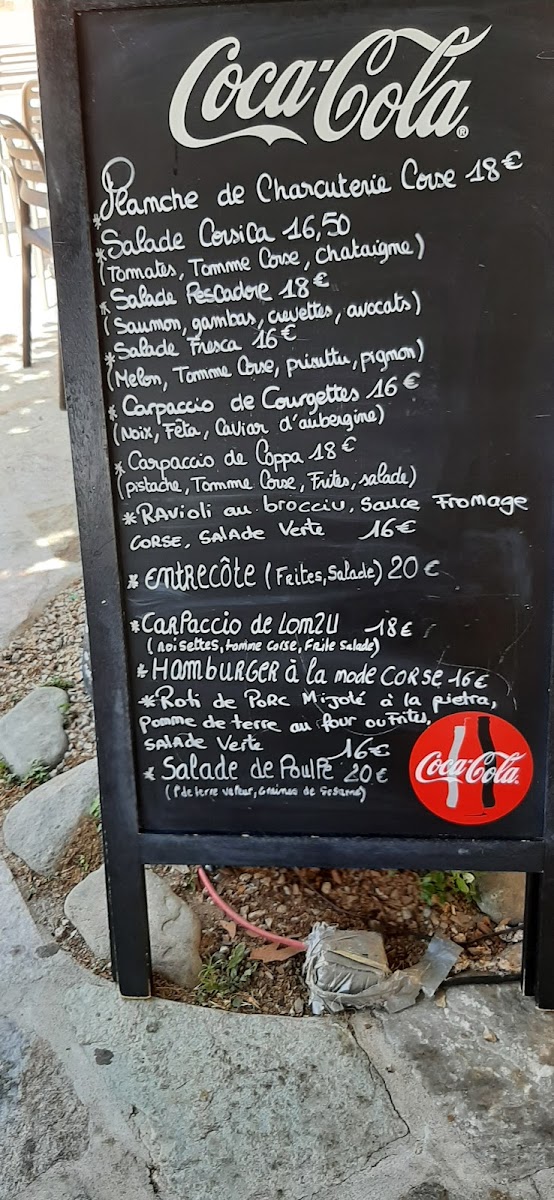 Coca-Cola®
*Planche de Charcuterie Corse 18€
*Salade Corsica 16,50
(Tomates, Tomme Corse, chataigne)
*Salade Pescadore 18€
(Saumon, gambas, crevettes, avocats)
*Salade Fresca 16€
(Melon, Tomme Corse, prisuttu, pignon)
*Carpaccio de Courgettes 16€
(Noix, Fêta, Caviar d'aubergine)
*Carpaccio de Coppa 18€
(pistache, Tomme Corse, Frites, salade)
*RAvioli au brocciu, Sauce FroMage
CORSE, SALADE Verte 16€
*ENTRECÔTE (Frites, Salade) 20€
*CARPaccio de LOMZU 18€
(noisettes, tomme corse, Frite Salade)
*HAMBURGER à la mode CORSE 16€
*Roti de PoRC Mijoté à la pietra,
Pomme de terre au four ou Frites,
SALADE Verte 16€
*Salade de PoulPe 20€
(P de terre vapeur, Graines de Sesame)
Coca-Cola